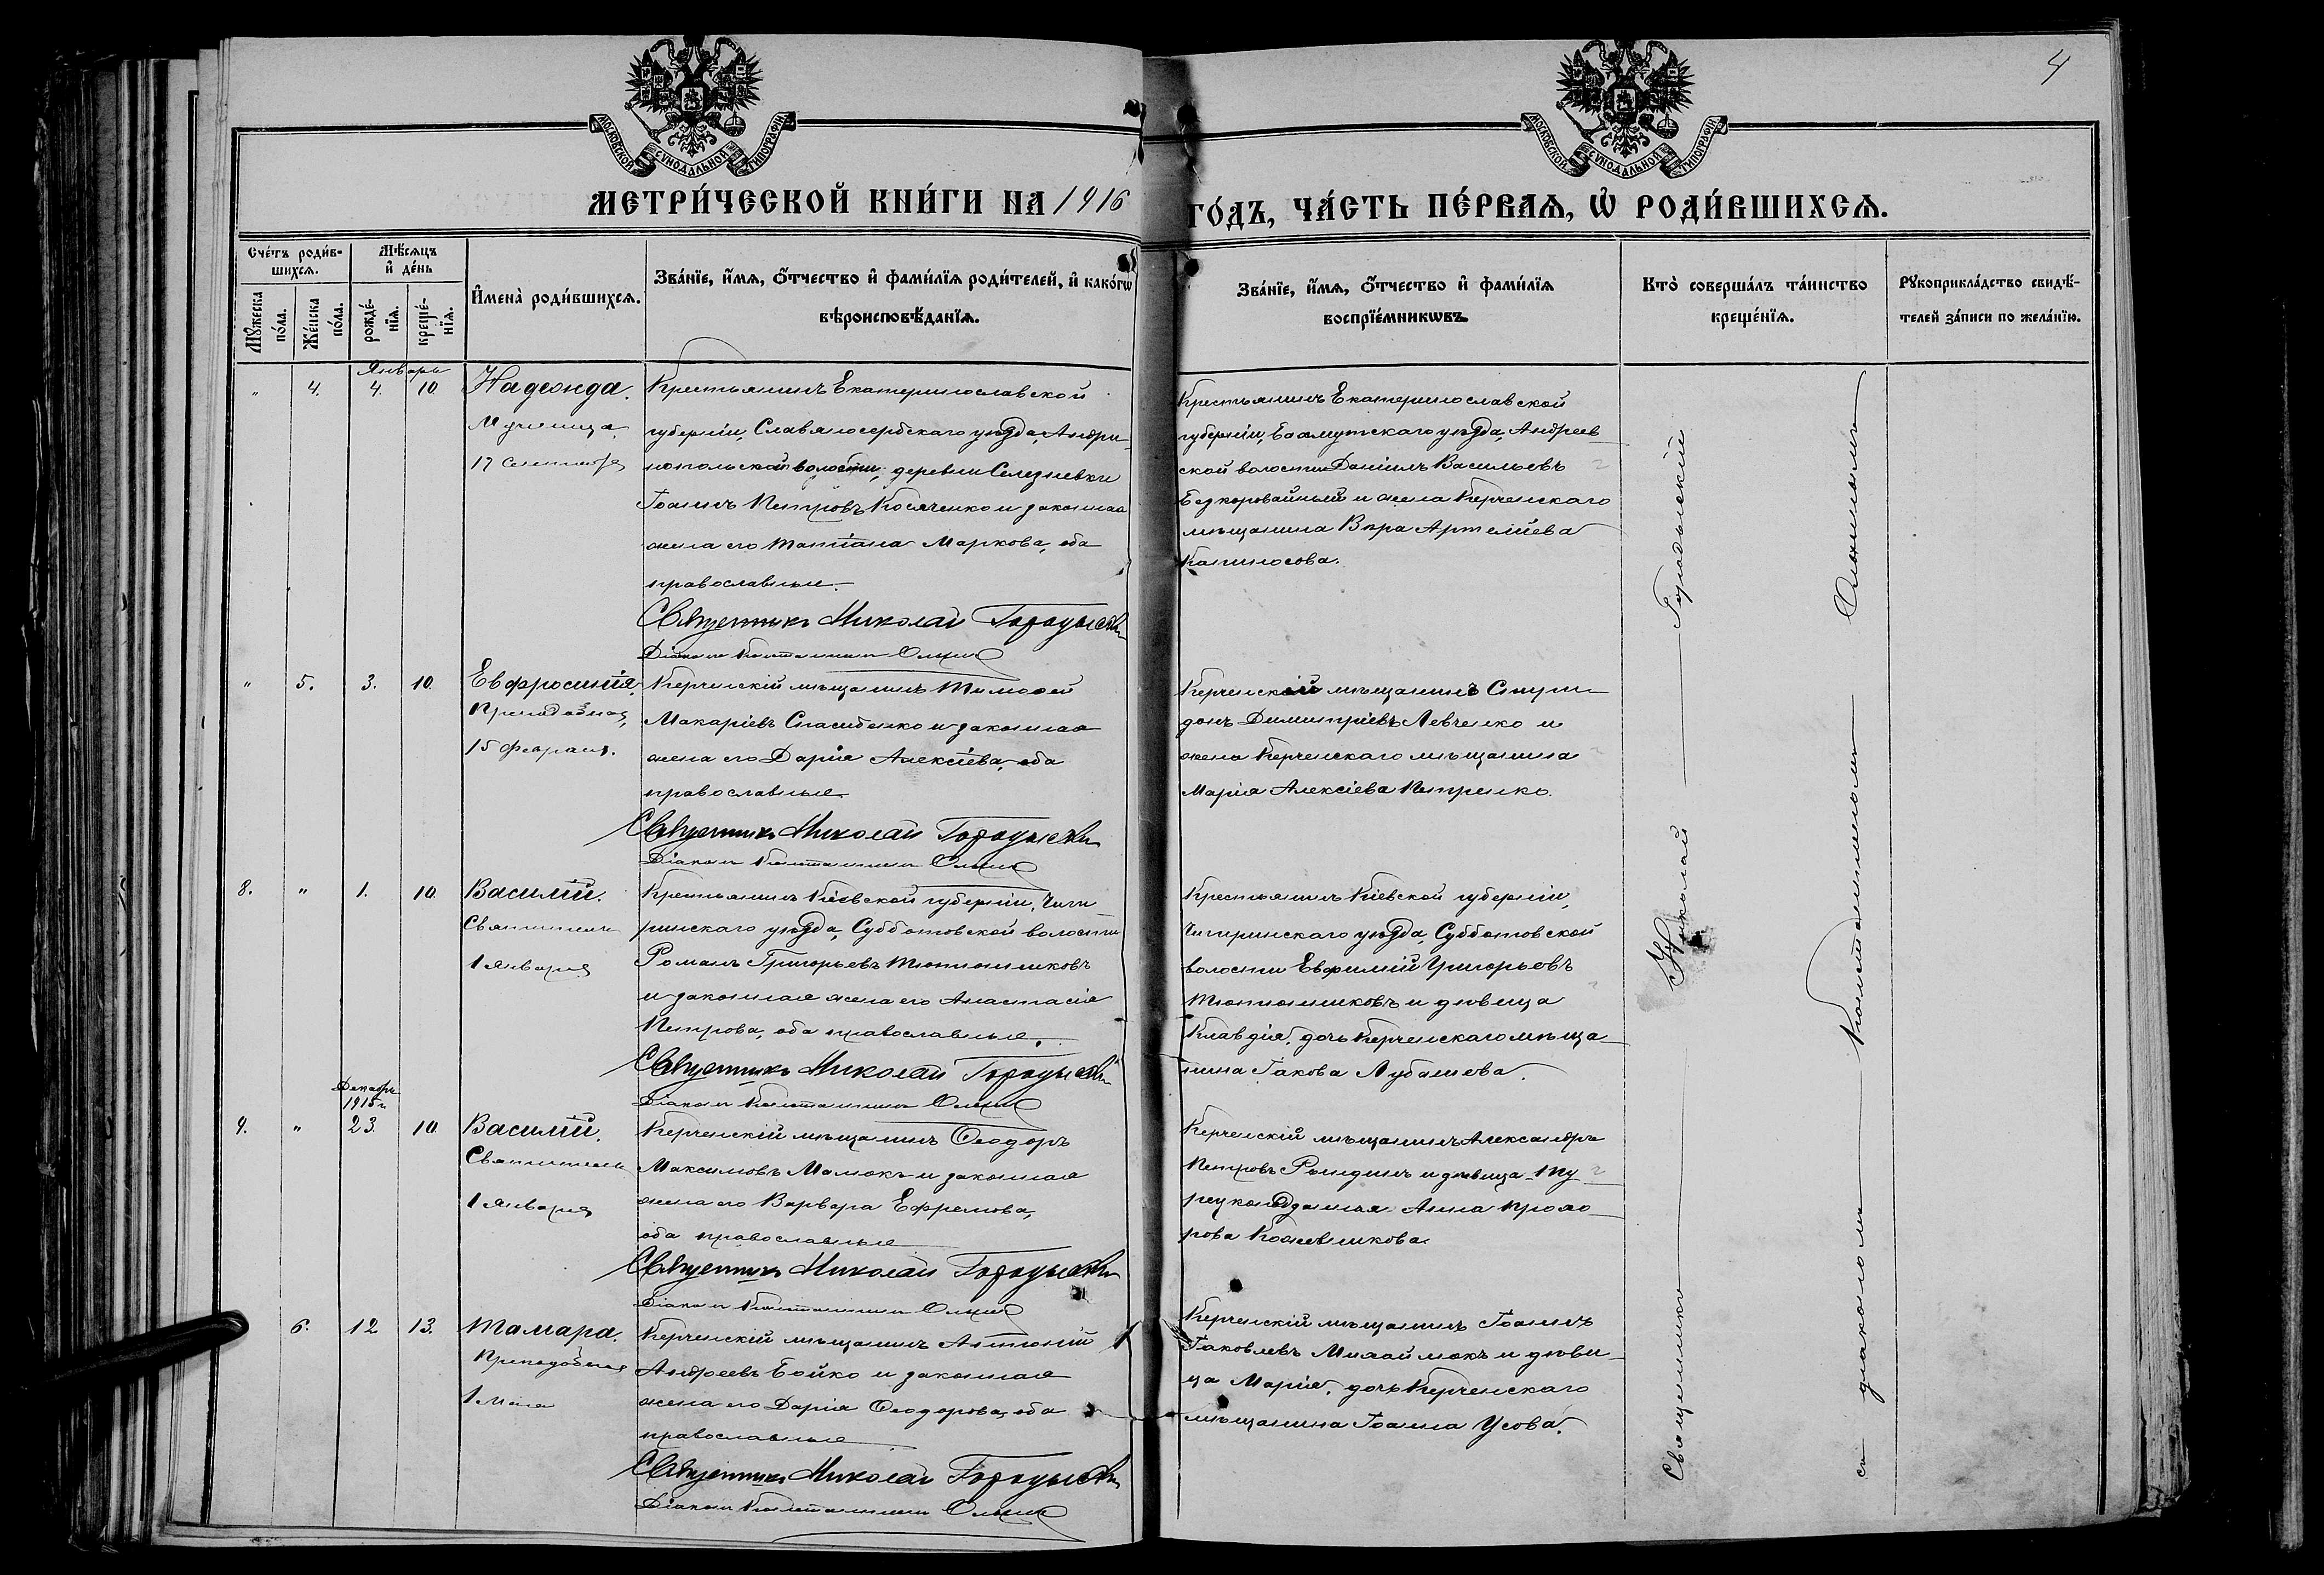 4
МОСКОВСКОЙ СѴНОДАЛЬНОЙ ТИПОГРАФІИ
МОСКОВСКОЙ СѴНОДАЛЬНОЙ ТИПОГРАФІИ
МЕТРИ́ЧЕСКОЙ КНИ́ГИ НА 1916 ГО́ДЪ, ЧА́СТЬ ПЕ́РВАѦ, Ѡ҆ РОДИ́ВШИХСѦ.
Сче́тъ роди́в-
шихсѧ.
Мꙋ́жеска по́ла.
Же́нска по́ла.
Мѣ́сѧцъ и҆ де́нь
рожде́-нїѧ.
креще́-нїѧ.
И҆мена̀ роди́вшихсѧ.
Зва́нїе, и҆́мѧ, ѻ҆́тчество и҆ фами́лїѧ роди́телей, и҆ како́гѡ
вѣроисповѣ́данїѧ.
Зва́нїе, и҆́мѧ, ѻ҆́тчество и҆ фами́лїѧ
воспрїе́мникѡвъ.
Кто̀ соверша́лъ та́инство
креще́нїѧ.
Рꙋкоприкла́дство свидѣ́-
телей за́писи по жела́нїю.
Январь
" 4. 4. 10. Надежда.
Мученица,
17 Сентября
Крестьянинъ Екатеринославской
губерніи, Славяносербскаго уѣзда, Андрі-
нопольской волости, деревни Селезневки
Іоаннъ Петровъ Косяченко и законная
жена его Татіана Маркова, оба
православные.
Священникъ Николай Городыскій
Діаконъ Константинъ
Крестьянинъ Екатеринославской
губерніи, Бахмутскаго уѣзда, Андреев-
ской волости Даніилъ Васильевъ
Безкоровайный и жена Керченскаго
мѣщанина Вѣра Артеміева
Капиносова.
" 5. 3. 10. Евфросинія.
Преподобная,
15 февраля.
Керченскій мѣщанинъ Тимоѳей
Макаріевъ Спасибенко и законная
жена его Дарія Алексіева, оба
православные
Священникъ Николай Городыскій
Діаконъ Константинъ
Керченскій мѣщанинъ Спури-
донъ Димитріевъ Левченко и
жена Керченскаго мѣщанина
Марія Алексіева Петренко.
8. " 1. 10. Василій.
Святитель
1 Января
Крестьянинъ Кіевской губерніи, Чиги-
ринскаго уѣзда, Субботовской волости
Романъ Григорьевъ Тютюнниковъ
и законная жена его Анастасія
Петрова, оба православные.
Священникъ Николай Городыскій
Діаконъ Константинъ
Крестьянинъ Кіевской губерніи,
Чигиринскаго уѣзда, Субботовской
волости Евфимій Григорьевъ
Тютюнниковъ и дѣвица
Клавдія, дочь Керченскаго мѣща-
нина Іакова Лубашева.
Декабрь
1915 г.
9. " 23. 10. Василій.
Святитель
1 Января
Керченскій мѣщанинъ Ѳеодоръ
Максимовъ Мамокъ и законная
жена его Варвара Ефремова,
оба православные
Священникъ Николай Городыскій
Діаконъ Константинъ
Керченскій мѣщанинъ Александръ
Петровъ Рындинъ и дѣвица Ту-
рецкоподданная Анна Прохо-
рова Кожевникова
6. 12 13. Тамара.
Преподобная
1 Мая
Керченскій мѣщанинъ Антоній
Андреевъ Бойко и законная
жена его Дарія Ѳеодорова, оба
православные
Священникъ Николай Городыскій
Діаконъ Константинъ
Керченскій мѣщанинъ Іоаннъ
Іаковлевъ Михаймокъ и дѣви-
ца Марія, дочь Керченскаго
мѣщанина Іоанна Усова.
Священникъ Николай Городыскій
съ діакономъ Константиномъ